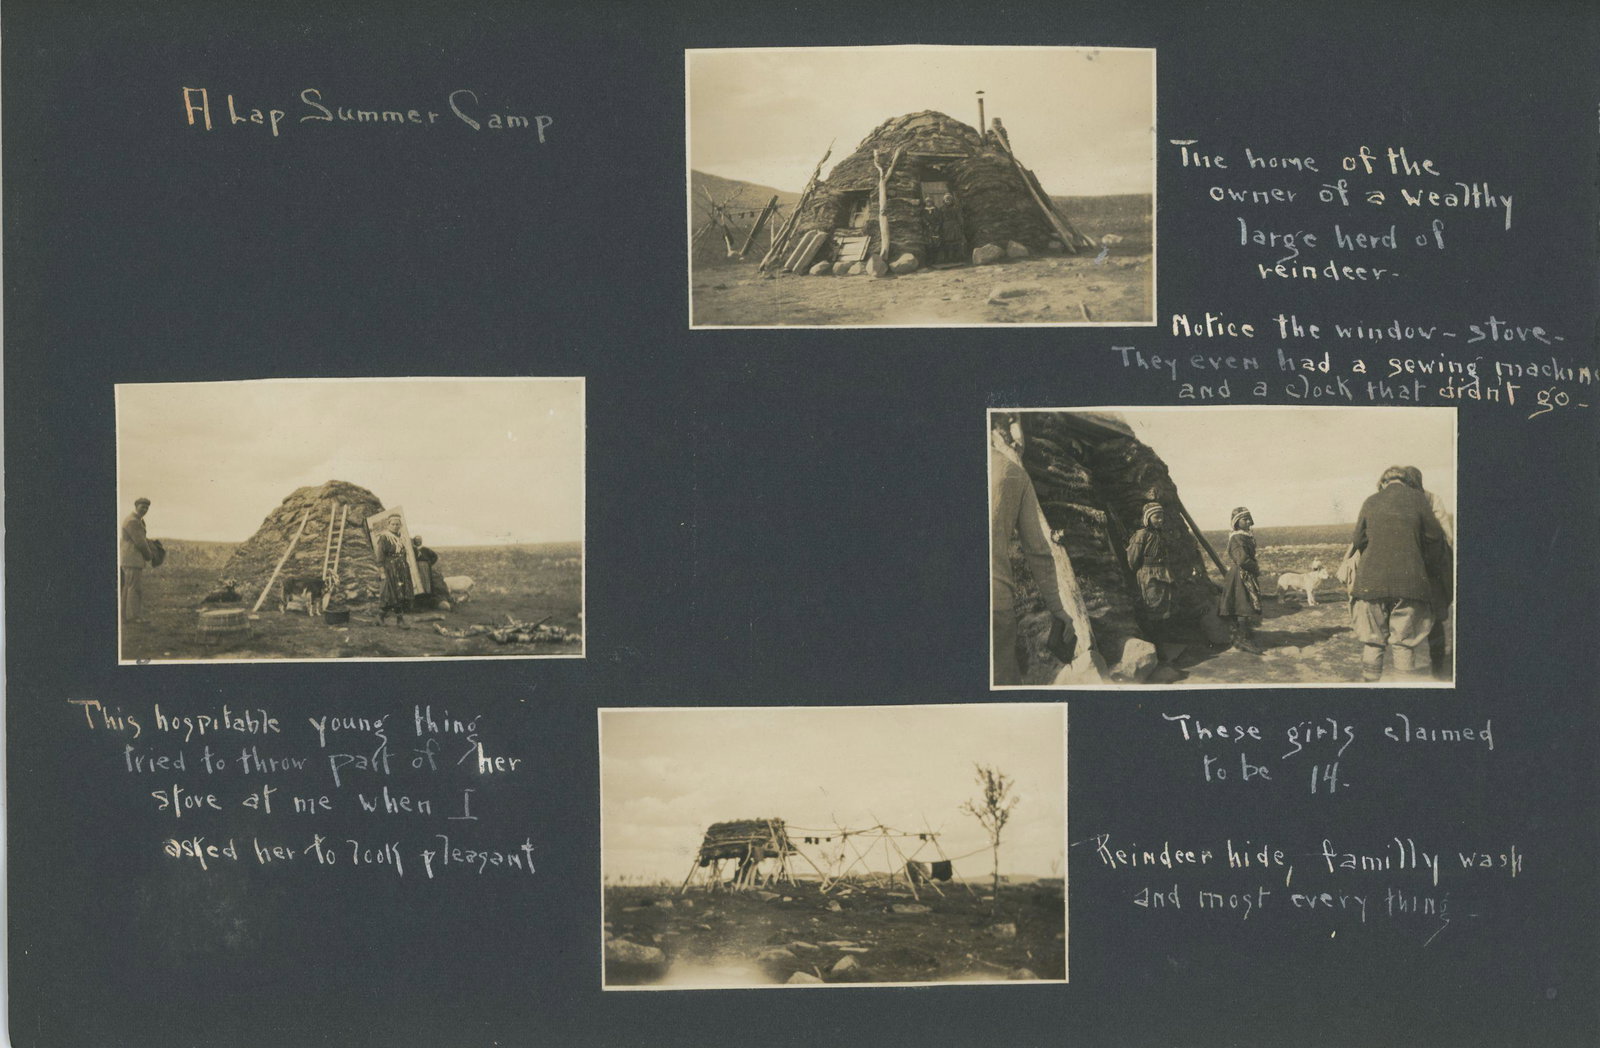 A Lap Summer Camp
The home of the
owner of a wealthy
large herd of
reindeer-
Notice the window - stove -
They even had a sewing machine
and a clock that didnt go -
This hospitable young thing
tried to throw part of her
stove at me when I
asked her to look pleasant
These girls claimed
to be 14.
Reindeer hide, familly wash
and most every thing -